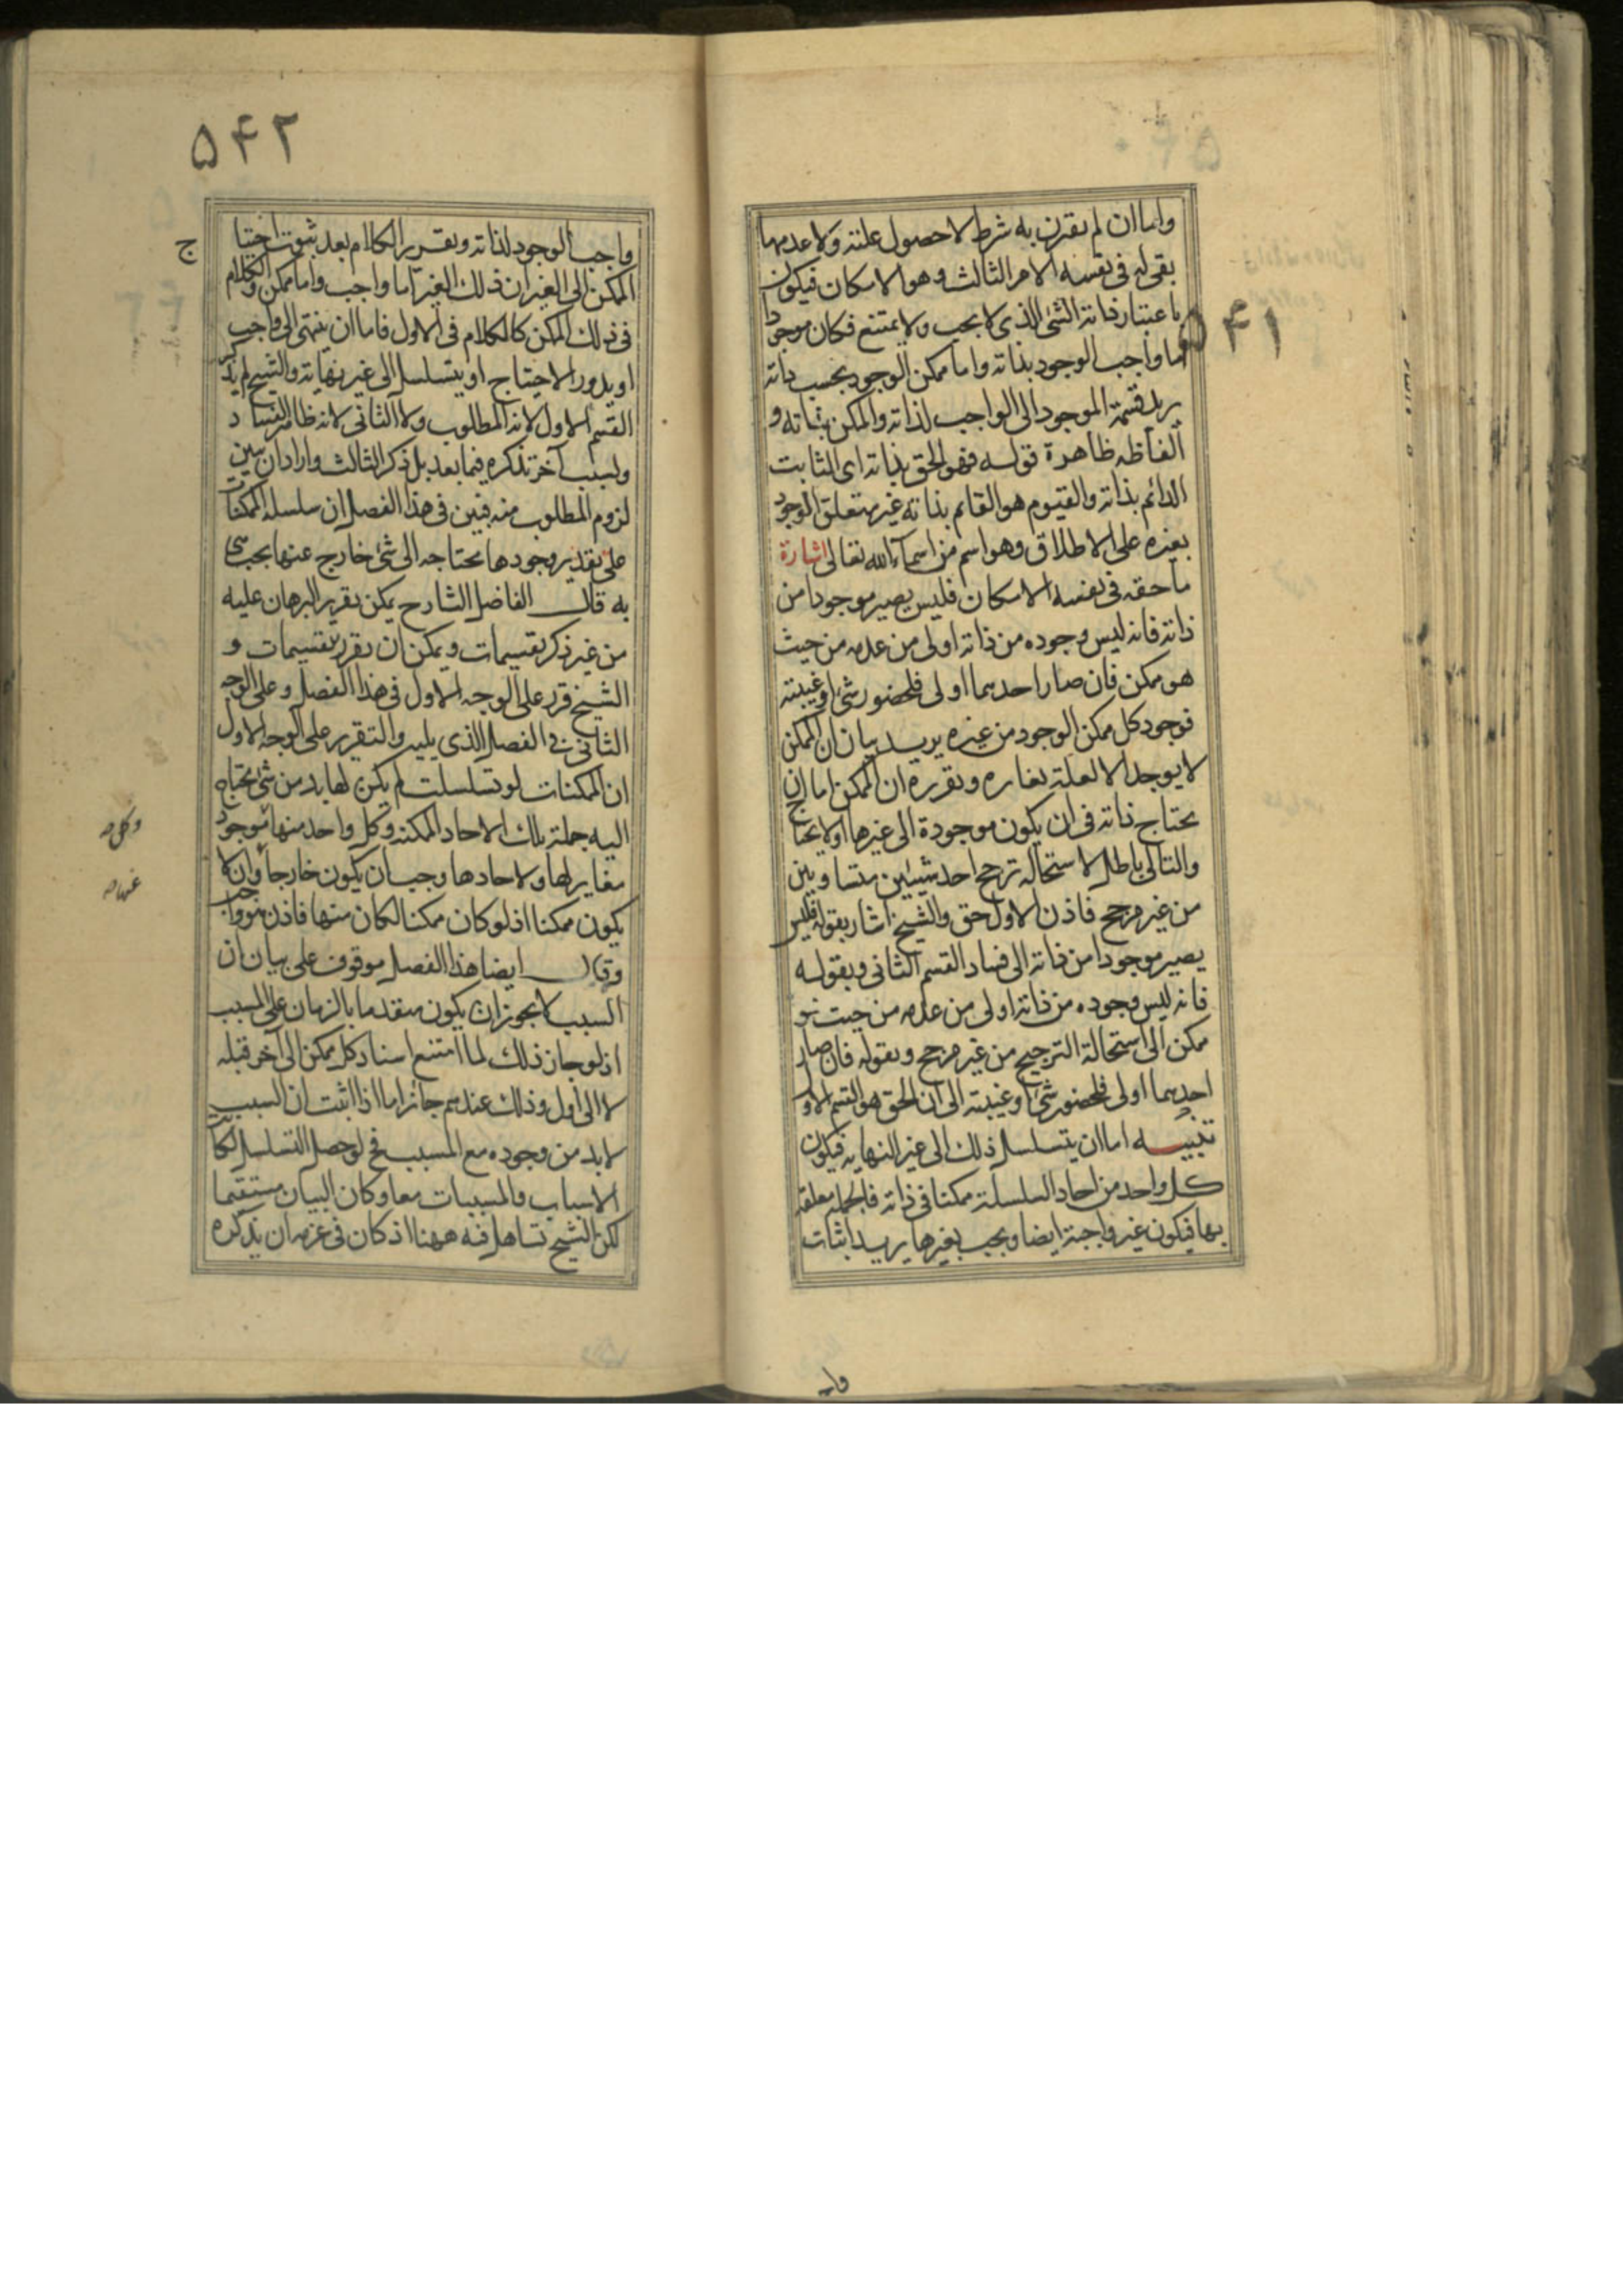 ۵۴۱
واما ان لم یقرن به شرط لا حصول علته ولا عدمها
بقی له فی نفسه الامر الثالث وهو الامکان فیکون
باعتبار ذاته الشئ الذی لا یجب ولا یمتنع فکان موجود
اما واجب الوجود بذاته واما ممکن الوجود بحسب ذاته
یرید قسمة الموجود الی الواجب لذاته والممکن بذاته و
الفاظه ظاهرة قوله فهو الحق بذاته ای الثابت
الدائم بذاته والقیوم هو القائم بذاته غیر متعلق الوجود
بغیره علی الاطلاق وهو اسم من اسماء الله تعالی اشارة
ما حقه فی نفسه الامکان فلیس یصیر موجودا من
ذاته فانه لیس وجوده من ذاته اولی من عدمه من حیث
هو ممکن فان صار احدهما اولی فلحضور شئ او غیبته
فوجود کل ممکن الوجود من غیره یرید بیان ان الممکن
لا یوجد الا لعلة تغایره وتقریره ان الممکن اما ان
یحتاج ذاته فی ان یکون موجودة الی غیرها اولا یحتاج
والتالی باطل لاستحالة ترجح احد شیئین متساویین
من غیر مرجح فاذن الاول حق والشیخ اشار بقوله فلیس
یصیر موجودا من ذاته الی فساد القسم الثانی وبقوله
فانه لیس وجوده من ذاته اولی من عدمه من حیث هو
ممکن الی استحالة الترجیح من غیر مرجح وبقوله فان صار
احدهما اولی فلحضور شئ او غیبته الی ان الحق هو القسم الاول
تنبیه اما ان یتسلسل ذلک الی غیر النهایه فیکون
کل واحد من احاد السلسلة ممکنا فی ذاته فالجملة معلقة
بها فیکون غیر واجبة ایضا ویجب بغیرها یرید اثبات
۵۴۲
واجب الوجود لذاته وتقریر الکلام بعد ثبوت احتیا
ج
الممکن الی الغیر ان ذلک الغیر اما واجب واما ممکن والکلام
فی ذلک الممکن کالکلام فی الاول فاما ان ینتهی الی واجب
او یدور الاحتیاج او یتسلسل الی غیر نهایته والشیخ لم یذکر
القسم الاول لانه المطلوب ولا الثانی لانه ظاهر الفساد
ولسبب آخر تذکره فیما بعد بل ذکر الثالث واراد ان یبین
لزوم المطلوب منه فبین فی هذا الفصل ان سلسله الممکنات
علی تقدیر وجودها یحتاجه الی شئ خارج عنها یجب هی
به قال الفاضل الشارح یمکن تقریر البرهان علیه
من غیر ذکر تقسیمات ویمکن ان یقرر بتقسیمات و
الشیخ قرر علی الوجه الاول فی هذا الفصل وعلی الوجه
الثانی فی الفصل الذی یلیه والتقریر علی الوجه الاول
ان الممکنات لو تسلسلت لم یکن لها بد من شئ یحتاج
الیه جملة تلک الاحاد الممکنه وکل واحد منها موجود
مغایر لها ولاحادها وجب ان یکون خارجا وان لا
یکون ممکنا اذ لو کان ممکنا لکان منها فاذن هو واجب
وقال ایضا هذا الفصل موقوف علی بیان ان
السبب لا یجوز ان یکون متقدما بالزمان علی المسبب
اذ لو جاز ذلک لما امتنع اسناد کل ممکن الی آخر قبله
لا الی اول وذلک عندهم جائز اما اذا اثبت ان السبب
لا بد من وجوده مع المسبب فح لو حصل التسلسل لکانت
الاسباب والمسببات معا وکان البیان مستقیما
لکن الشیخ تساهل فیه ههنا اذ کان فی عزمه ان یذکره